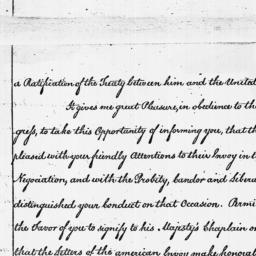 a Ratification of the Treaty between him and the United
It gives me great Pleasure, in obedience to th
gress, to take this Opportunity of informing you, that th
pleased with your friendly Attentions to their Invoy in t
Negociation, and with the Probity, Candor and Libera
distinguished your Conduct on that Occasion. Permi
the Favor of you to signify to his Majesty's Chaplain o
that the Letters of the american Invoy make honorab